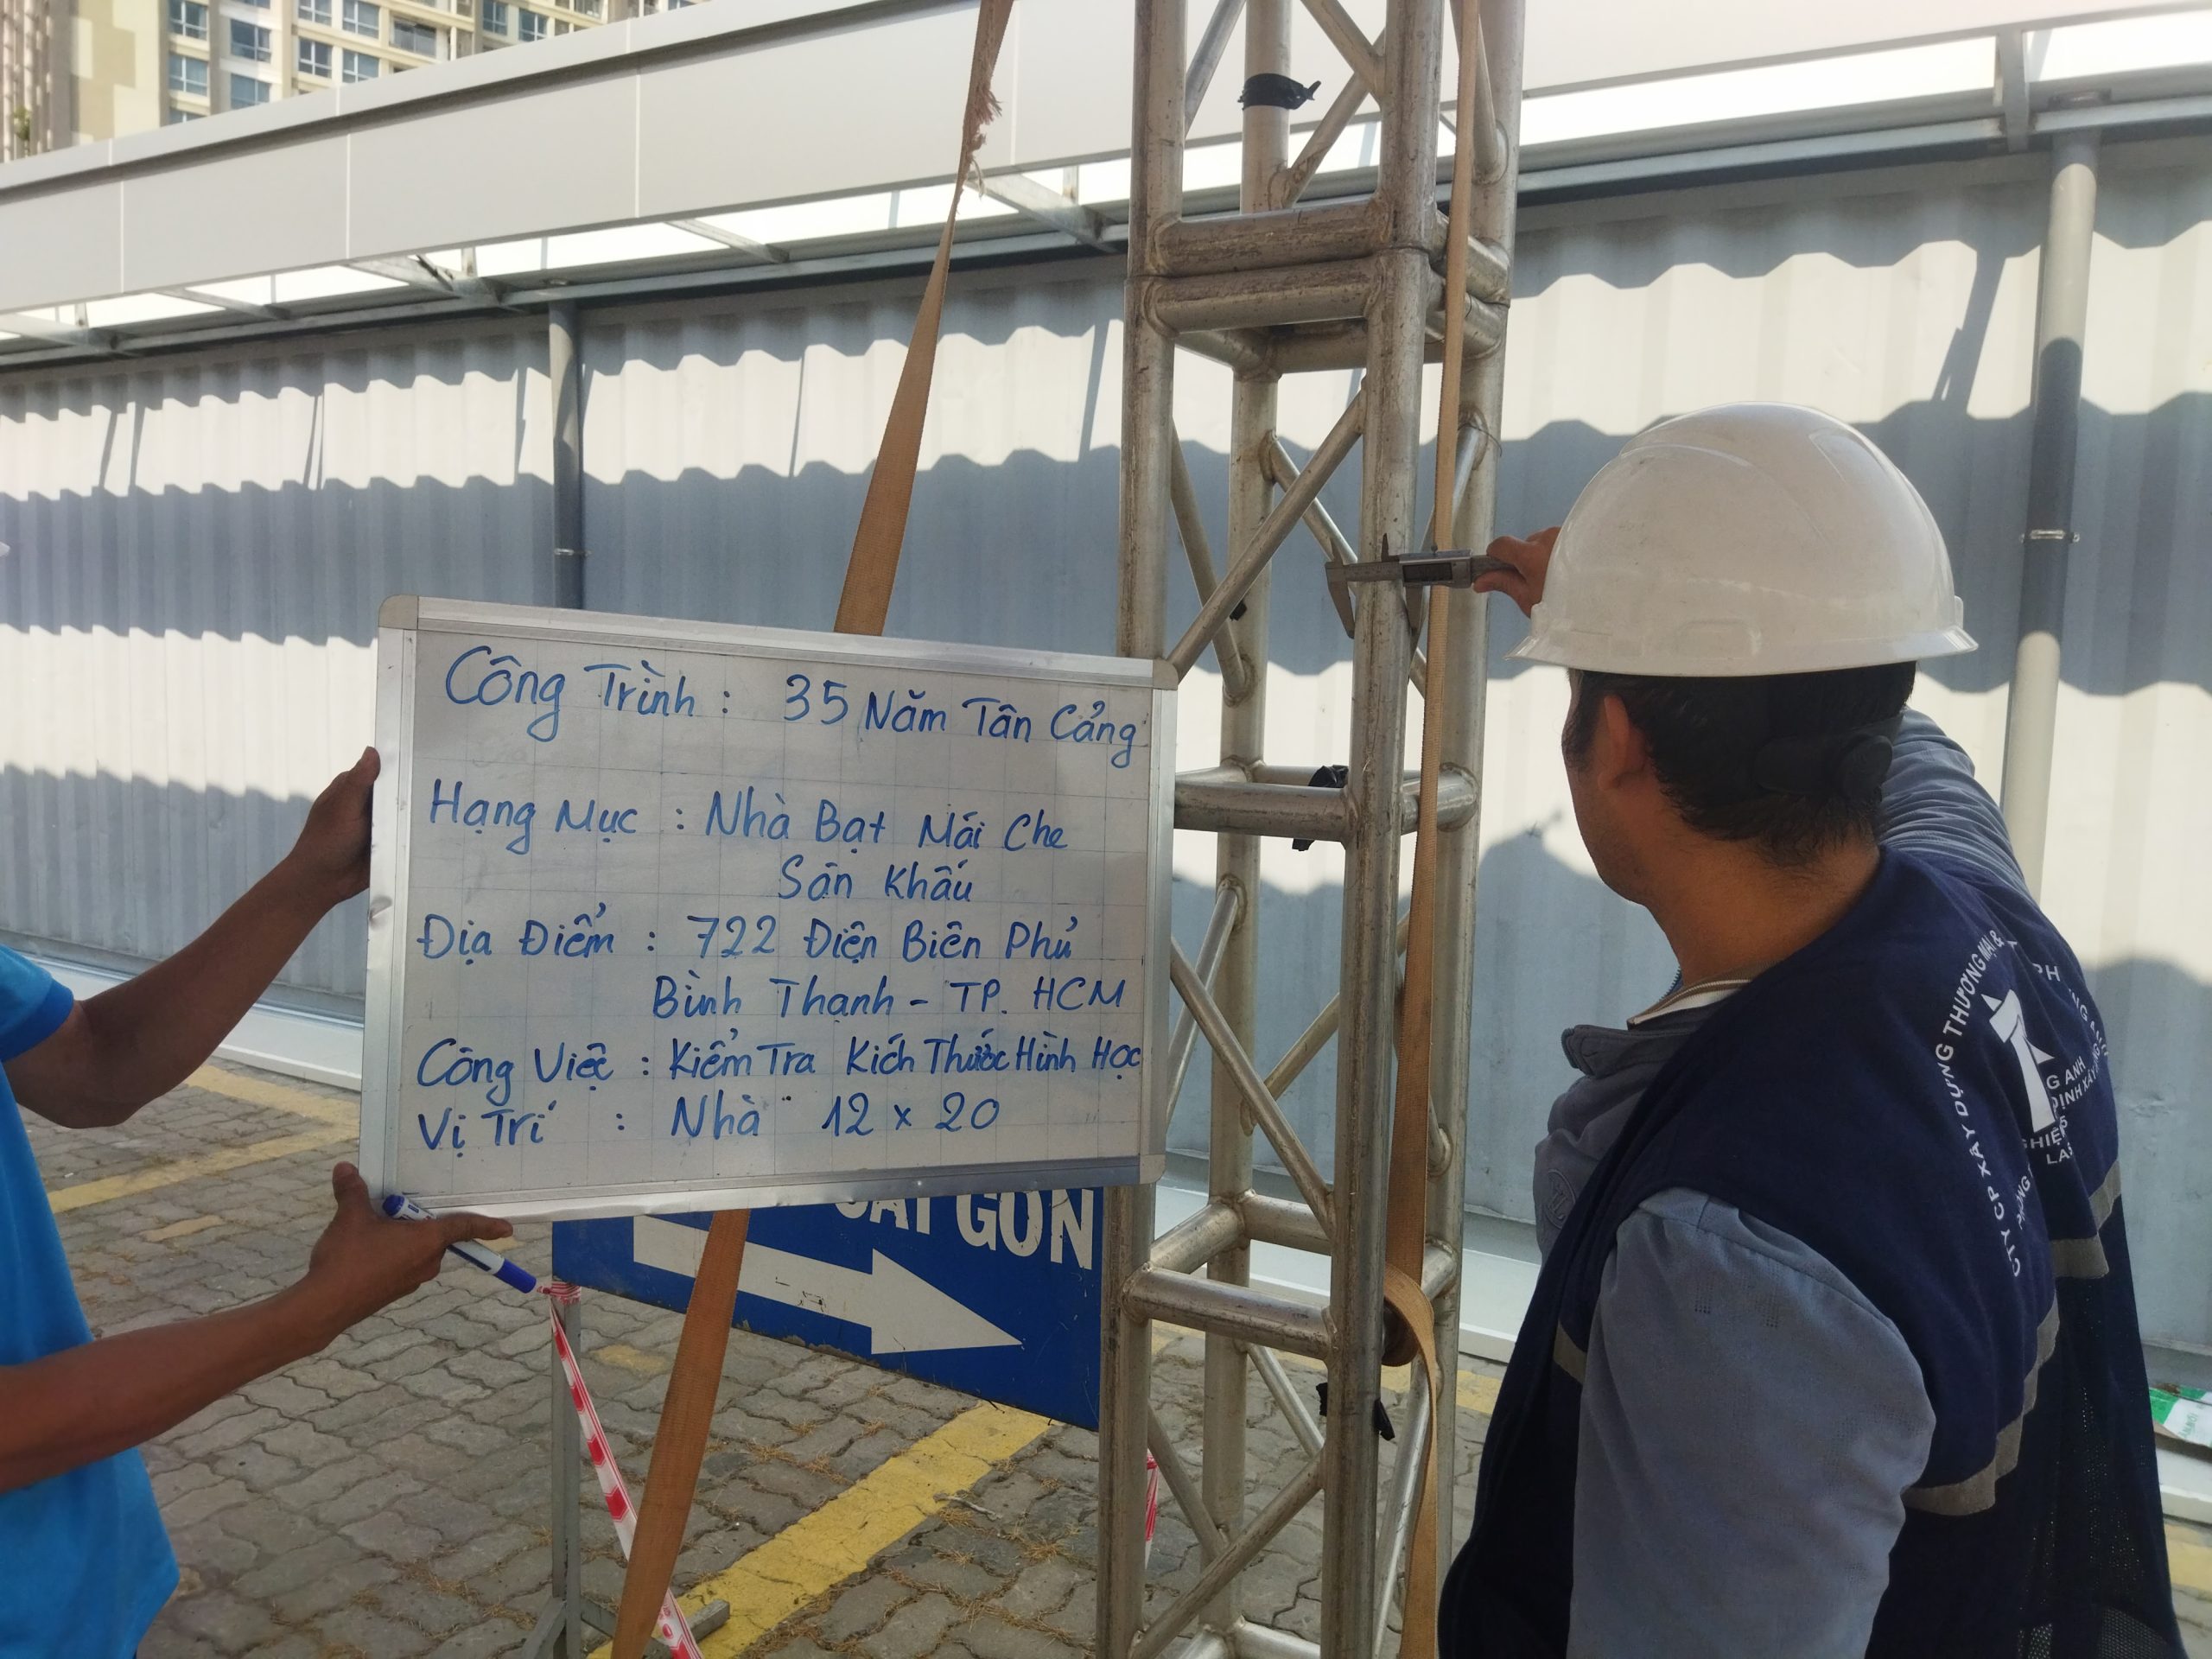 Công Trình : 35 Năm Tân Cảng
Hạng Mục : Nhà Bạt Mái Che
Sân Khấu
Địa Điểm : 722 Điện Biên Phủ
Bình Thạnh - TP. HCM
Công Việc : Kiểm Tra Kích Thước Hình Học
Vị Trí : Nhà 12 x 20
GON
CTY CP XÂY DỰNG THƯƠNG MẠI &